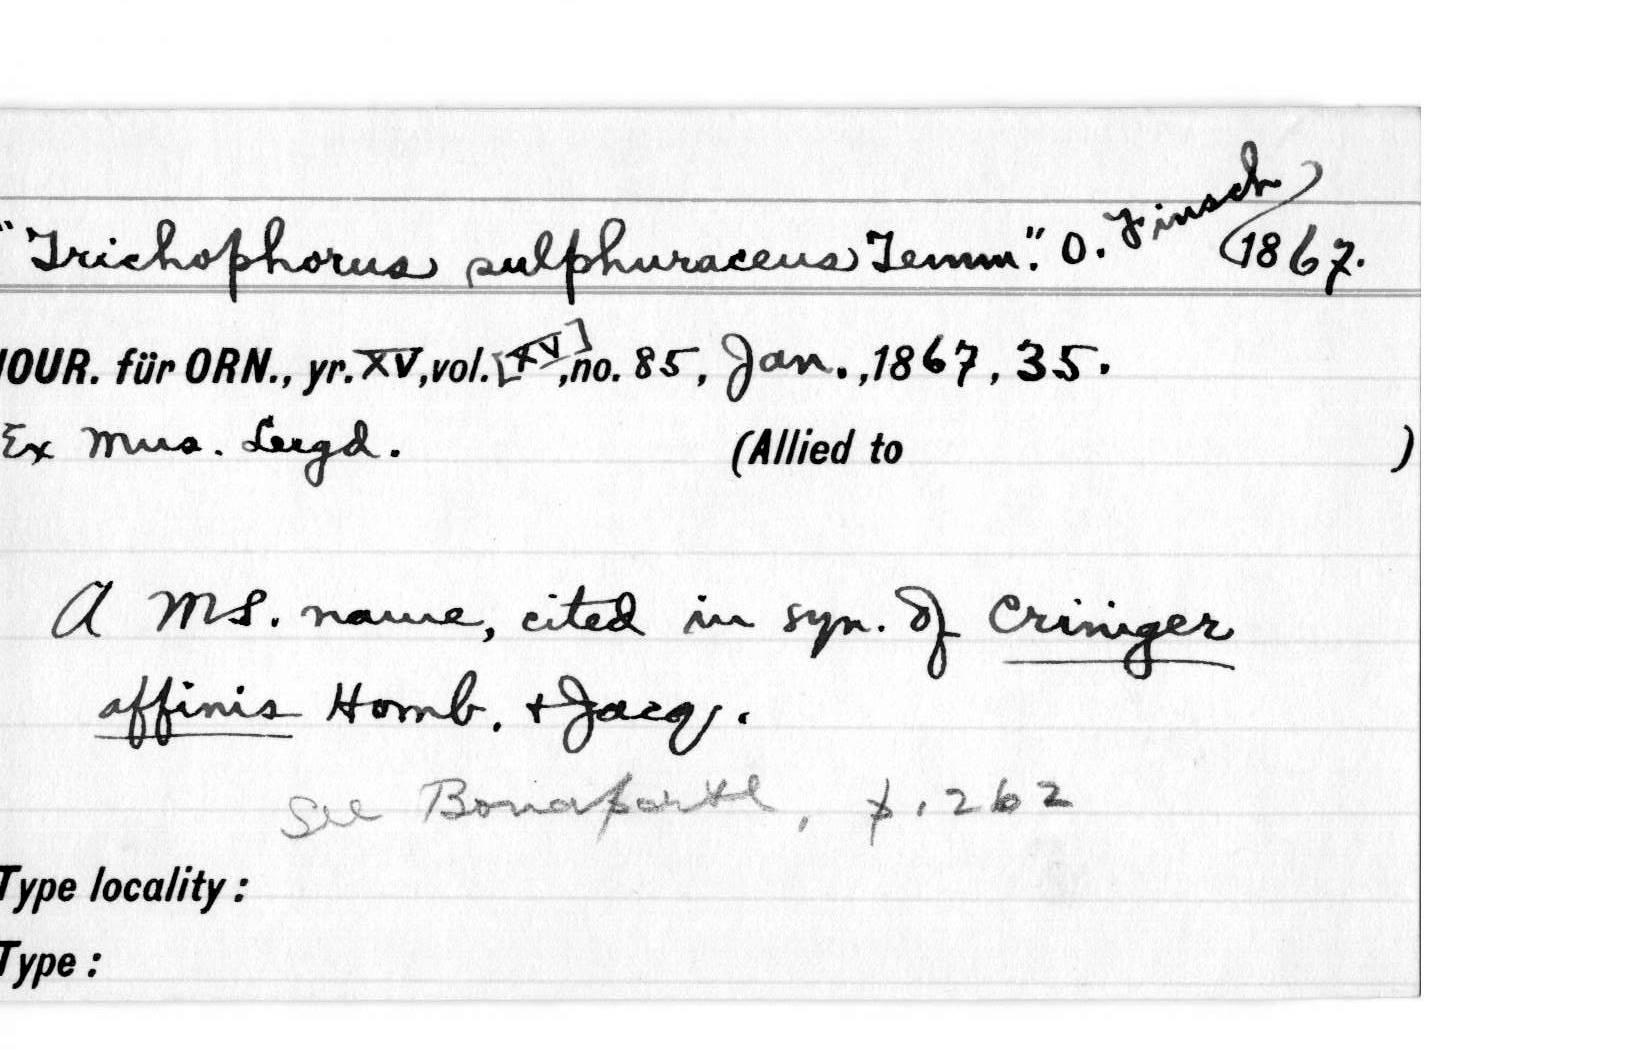 "Trichophorus sulphuraceus Temm". O. Finsch 1867.
JOUR. für ORN., yr. XV, vol. [XV], no. 85, Jan., 1867, 35.
Ex Mus. Lugd. (Allied to )
A MS. name, cited in syn. of Criniger
affinis Homb. + Jacq.
See Bonaparte, p. 262
Type locality:
Type: